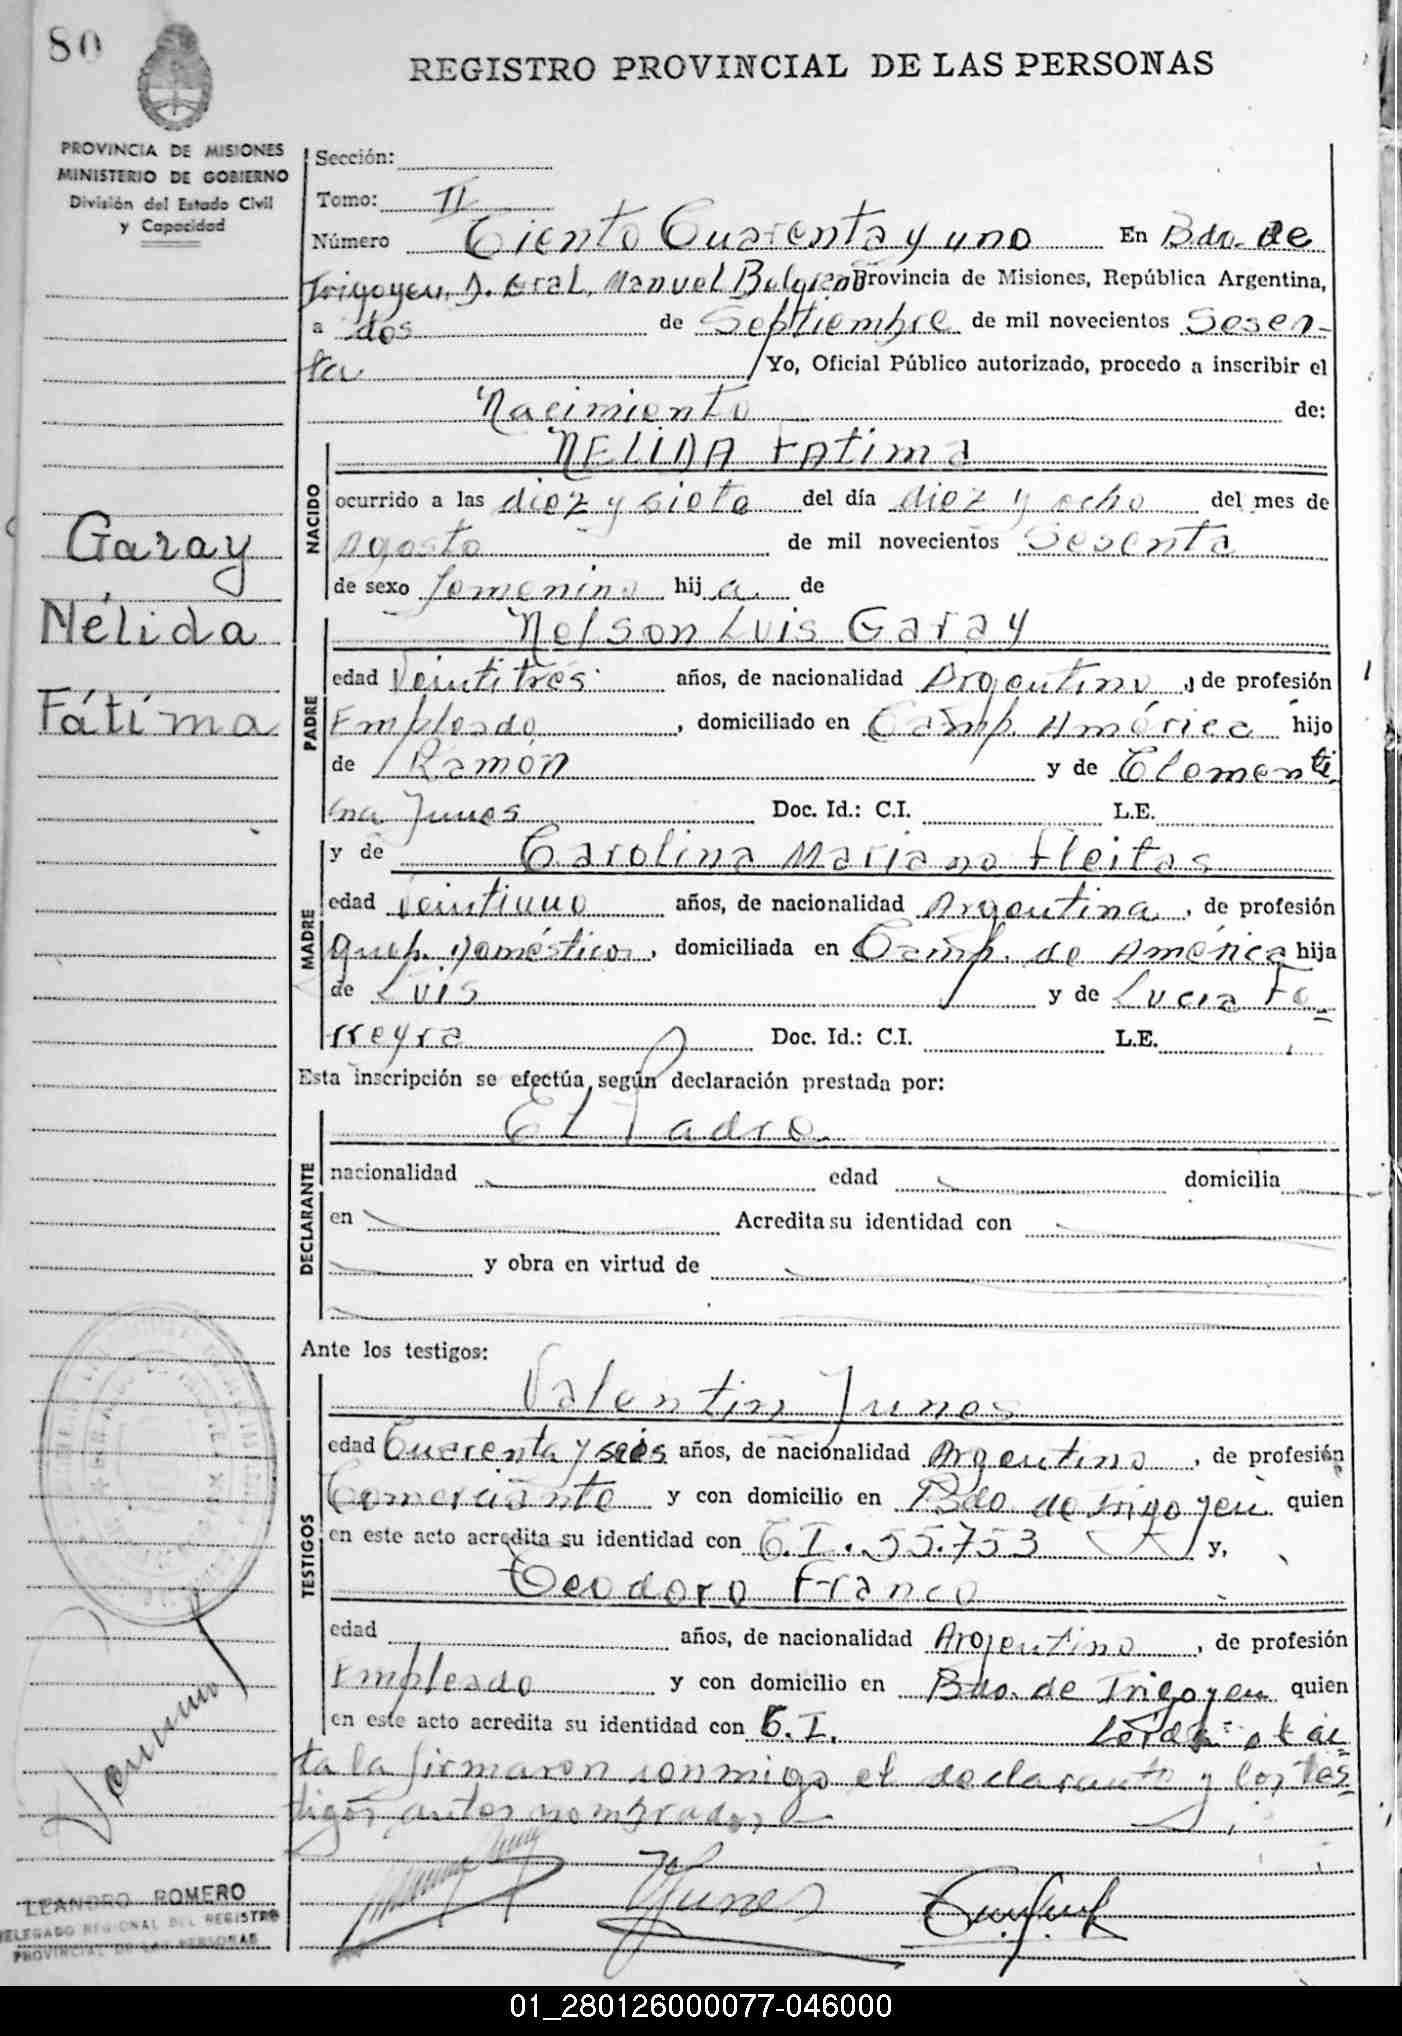 80
REGISTRO PROVINCIAL DE LAS PERSONAS
PROVINCIA DE MISIONES
MINISTERIO DE GOBIERNO
División del Estado Civil
y Capacidad
Sección:
Tomo: II
Número Ciento Cuarenta y uno En Bdo. de
Irigoyen, D. Gral. Manuel Belgrano Provincia de Misiones, República Argentina,
a dos de Septiembre de mil novecientos Sesen-
ta Yo, Oficial Público autorizado, procedo a inscribir el
Nacimiento de:
NELIDA FAtima
NACIDO
ocurrido a las diez y siete del día diez y ocho del mes de
Agosto de mil novecientos Sesenta
de sexo femenino hij a de
Garay
Nélida
Fátima
PADRE
Nelson Luis Garay
edad Veintitres años, de nacionalidad Argentino, de profesión
Empleado, domiciliado en Camp. América hijo
de Ramón y de Clementi
na Junes Doc. Id.: C.I. L.E.
MADRE
y de Carolina Mariana Fleitas
edad Veintiuno años, de nacionalidad Argentina, de profesión
queh. domésticos, domiciliada en Camp. de América hija
de Luis y de Lucia Fe-
rreyra Doc. Id.: C.I. L.E.
Esta inscripción se efectúa según declaración prestada por:
DECLARANTE
El Padre
nacionalidad edad domicilia
en Acredita su identidad con
y obra en virtud de
Ante los testigos:
TESTIGOS
Valentin Junes
edad Cuarenta y seis años, de nacionalidad Argentino, de profesión
Comerciante y con domicilio en Bdo. de Irigoyen quien
en este acto acredita su identidad con C.I. 55.753 y,
Teodoro Franco
edad años, de nacionalidad Argentino, de profesión
Empleado y con domicilio en Bdo. de Irigoyen quien
en este acto acredita su identidad con C.I. Leida el ac-
ta la firmaron conmigo el declarante y los tes-
tigos antes nombrados
Junes
LEANDRO ROMERO
DELEGADO REGIONAL DEL REGISTRO
PROVINCIAL DE LAS PERSONAS
01_280126000077-046000